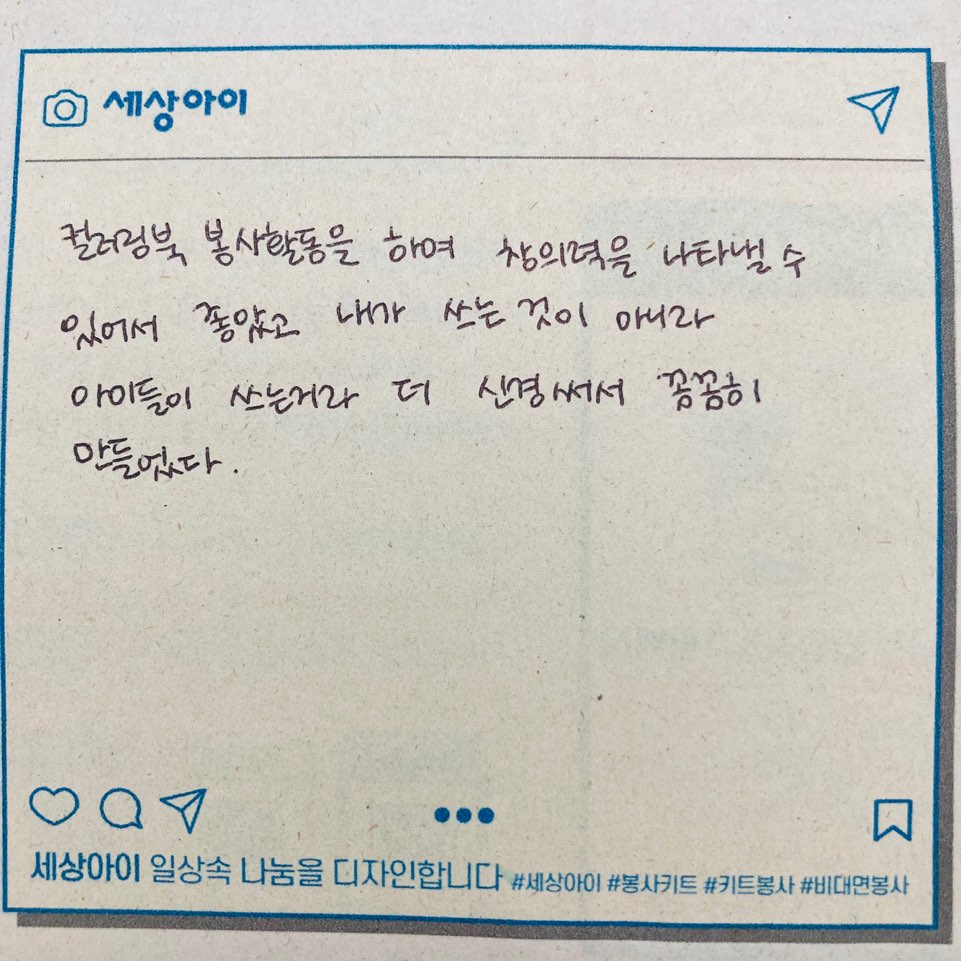 세상아이
컬러링북 봉사활동을 하며 창의력을 나타낼 수
있어서 좋았고 내가 쓰는 것이 아니라
아이들이 쓰는거라 더 신경써서 꼼꼼히
만들었다.
세상아이 일상속 나눔을 디자인합니다 #세상아이 #봉사키트 #키트봉사 #비대면봉사